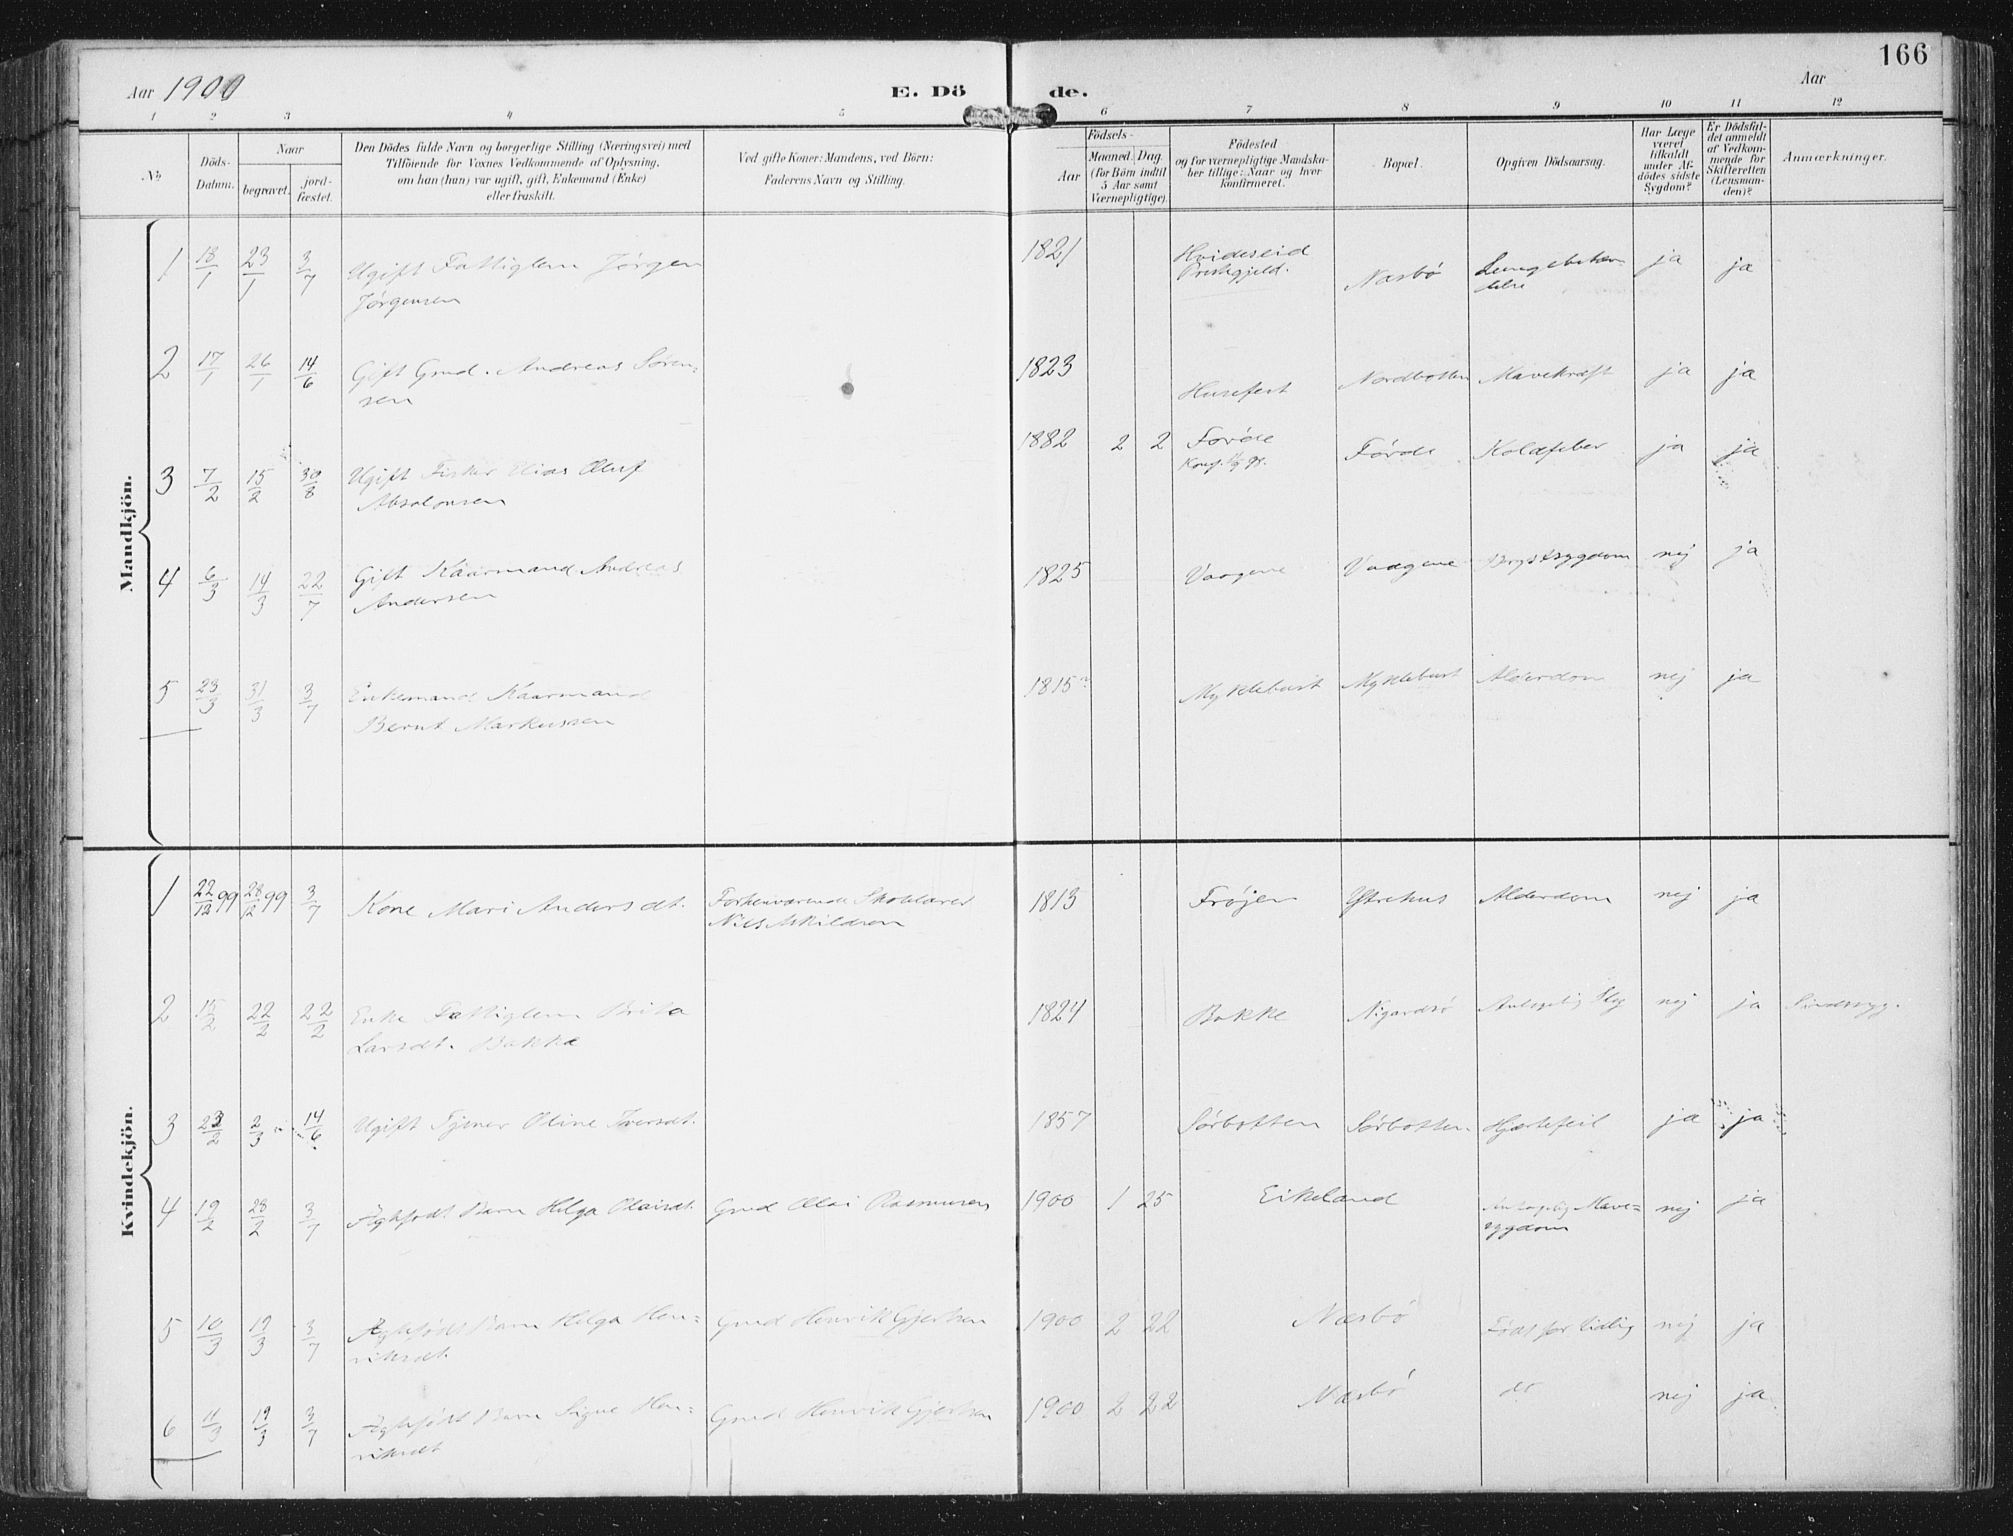 166
Aar 1900
E. Dö
de.
Aar
1 2 3 4 5 6 7 8 9 10 11 12
No.
Döds-Datum.
Naar
begravet.
jord-fæstet.
Den Dödes fulde Navn og borgerlige Stilling (Næringsvei) med
Tilföiende for Voxnes Vedkommende af Oplysning,
om han (hun) var ugift, gift, Enkemand (Enke)
eller fraskilt.
Ved gifte Koner: Mandens, ved Börn:
Faderens Navn og Stilling.
Födsels-
Aar
Maaned. Dag.
(for Börn indtil
5 Aar samt
Værnepligtige).
Födested
og for værnepligtige Mandska-
ber tillige: Naar og hvor
konfirmeret.
Bopæl.
Opgiven Dödsaarsag.
Har Læge
været
tilkaldt
under Af-
dödes sidste
Sygdom?
Er Dödsfal-
det anmeldt
af Vedkom-
mende for
Skifteretten
(Lensman-
den)?
Anmærkninger.
Mandkjön.
1 18/1 23/1 3/7 Ugift Fattiglem Jørgen 1821 Hvideseid Næsbö ja ja
Jørgensen Prestegjeld.
2 17/1 26/1 14/6 Gift Grmd. Andreas Sören= 1823 Husefest Nordbotten Mavekræft ja ja
sen
3 7/2 15/2 30/8 Ugift Fisker Elias Oluf 1882 2 2 Förde Förde Koldfeber ja ja
Absalonsen
4 6/3 14/3 22/7 Gift Kaarmand Andreas 1825 Vaagene Vaagene Brystsygdom nej ja
Andersen
5 23/3 31/3 3/7 Enkemand Kaarmand 1815 Myklebust Myklebust Alderdom nej ja
Bernt Markussen
Kvindekjön.
1 22/12 99 28/12 99 3/7 Kone Mari Andersdt. Forhenværende Skolelærer 1813 Fröjen Ytrehus Alderdom nej ja
Nils Askildsen
2 15/2 22/2 22/2 Enke Fattiglem Brita 1824 Bakke Nigardsö nej ja Sindssyg.
Larsdt. Bakke
3 23/2 2/3 14/6 Ugift Tjener Oline Iversdt. 1857 Sörbotten Sörbotten Hjertefeil ja ja
4 19/2 28/2 3/7 Ægtefødt Barn Helga Olaisdt. Grmd Olai Rasmusen 1900 1 25 Eikeland Antagelig Mave= nej ja
sygdom
5 10/3 19/3 3/7 Ægtefødt Barn Helga Hen= Grmd Henrik Gjertsen 1900 2 22 Næsbö Födt for tidlig nej ja
riksdt.
6 11/3 19/3 3/7 Ægtefødt Barn Signe Hen= Grmd Henrik Gjertsen 1900 2 22 Næsbö do nej ja
riksdt